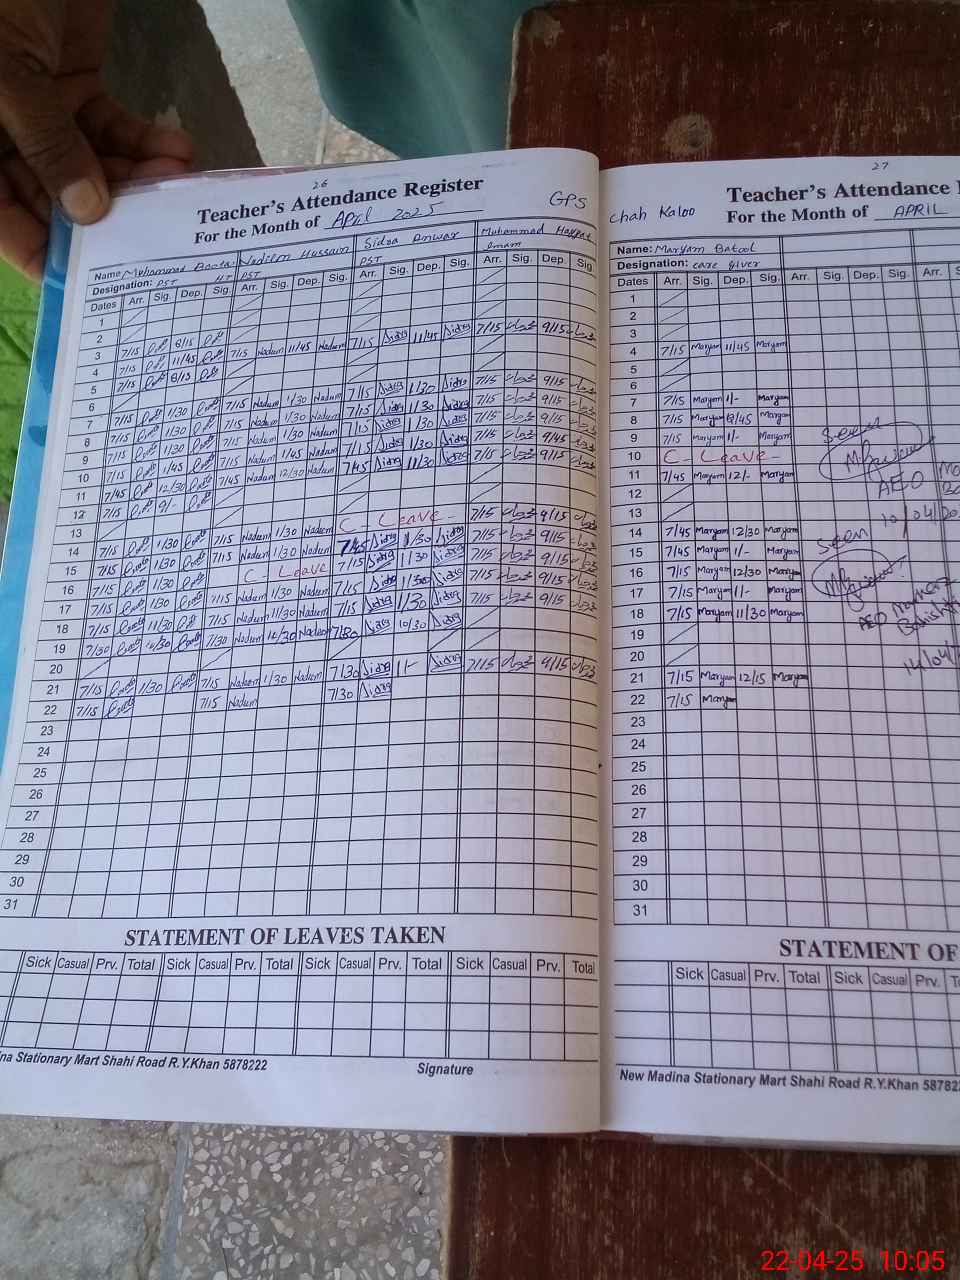 26
Teacher's Attendance Register
For the Month of April 2025
GPS
Name: Sidra Anwar Muhammad
Designation: PST PST PST Imam
Dates Arr. Sig. Dep. Sig. Arr. Sig. Dep. Sig. Arr. Sig. Dep. Sig. Arr. Sig. Dep. Sig.
1
2
3 7/15 8/15
4 7/15 11/45 7/15 Nadeem 11/45 Nadeem 7/15 Sidra 11/45 Sidra 7/15 9/15
5 7/15 8/15
6
7 7/15 1/30 7/15 Nadeem 1/30 Nadeem 7/15 Sidra 1/30 Sidra 7/15 9/15
8 7/15 1/30 7/15 Nadeem 1/30 Nadeem 7/15 Sidra 1/30 Sidra 7/15 9/15
9 7/15 1/30 7/15 Nadeem 1/30 Nadeem 7/15 Sidra 1/30 Sidra 7/15 9/15
10 7/15 1/45 7/15 Nadeem 1/45 Nadeem 7/15 Sidra 1/30 Sidra 7/15 9/45
11 7/45 12/30 7/45 Nadeem 12/30 Nadeem 7/45 Sidra 11/30 Sidra 7/15 9/15
12 7/15 9/-
13
14 7/15 1/30 7/15 Nadeem 1/30 Nadeem C - Leave 7/15 9/15
15 7/15 1/30 7/15 Nadeem 1/30 Nadeem 7/45 Sidra 1/30 Sidra 7/15 9/15
16 7/15 1/30 C - Leave 7/15 Sidra 1/30 Sidra 7/15 9/15
17 7/15 1/30 7/15 Nadeem 1/30 Nadeem 7/15 Sidra 1/30 Sidra 7/15 9/15
18 7/15 11/30 7/15 Nadeem 11/30 Nadeem 7/15 Sidra 11/30 Sidra 7/15 9/15
19 7/30 12/30 7/30 Nadeem 12/30 Nadeem 7/30 Sidra 10/30 Sidra
20
21 7/15 1/30 7/15 Nadeem 1/30 Nadeem 7/30 Sidra 1/- Sidra 7/15 9/15
22 7/15 7/15 Nadeem 7/30 Sidra
23
24
25
26
27
28
29
30
31
STATEMENT OF LEAVES TAKEN
Sick Casual Prv. Total Sick Casual Prv. Total Sick Casual Prv. Total Sick Casual Prv. Total
na Stationary Mart Shahi Road R.Y.Khan 5878222
Signature
27
Teacher's Attendance
Chah Kaloo For the Month of APRIL
Name: Maryam Batool
Designation: care giver
Dates Arr. Sig. Dep. Sig. Arr. Sig. Dep. Sig. Arr.
1
2
3
4 7/15 Maryam 11/45 Maryam
5
6
7 7/15 Maryam 1/- Maryam
8 7/15 Maryam 8/45 Maryam
9 7/15 Maryam 1/- Maryam
10 C - Leave -
11 7/45 Maryam 12/- Maryam
12
13
14 7/45 Maryam 12/30 Maryam
15 7/45 Maryam 1/- Maryam
16 7/15 Maryam 12/30 Maryam
17 7/15 Maryam 1/- Maryam
18 7/15 Maryam 11/30 Maryam
19
20
21 7/15 Maryam 12/15 Maryam
22 7/15 Maryam
23
24
25
26
27
28
29
30
31
Seen
AEO
10/04/20
Seen
AEO
14/04/
STATEMENT OF
Sick Casual Prv. Total Sick Casual Prv.
New Madina Stationary Mart Shahi Road R.Y.Khan 58782
22-04-25 10:05